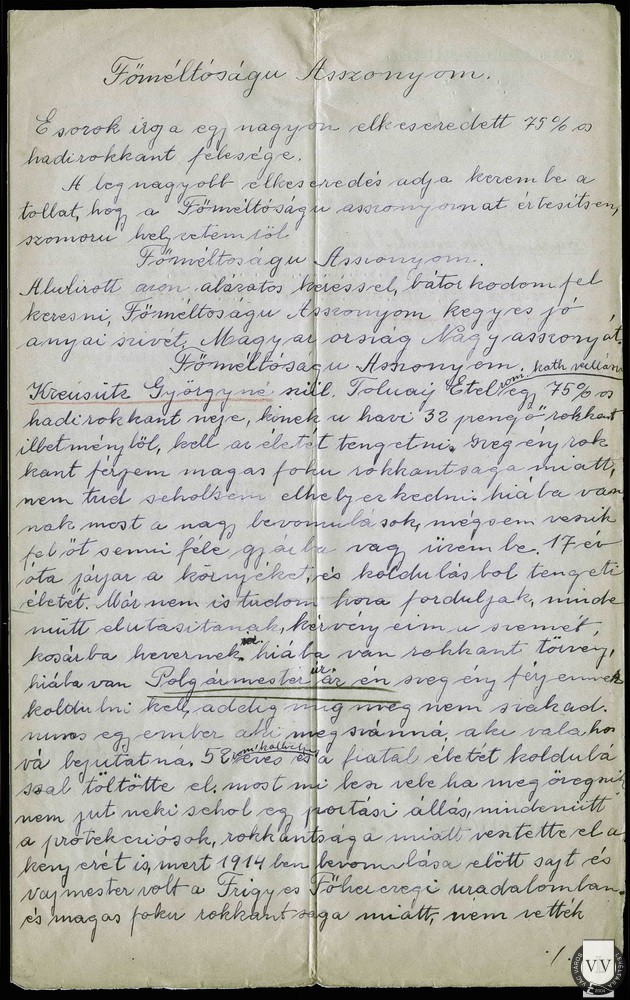 Főméltóságu Asszonyom.
E sorok irója egy nagyon elkeseredett 75% os
hadirokkant felesége.
A legnagyobb elkeseredés adja kezembe a
tollat, hogy a Főméltóságu asszonyomat értesitsem,
szomoru helyzetemről
Főméltóságu Asszonyom.
Alulirott azon alázatos kéréssel, bátorkodom fel
keresni, Főméltóságu Asszonyom kegyes jó
anyai szivét, Magyarország Nagyasszonyát.
Főméltóságu Asszonyom. rom. kath vallásu
Kreisütz Györgyné szül. Tolnaij Etel egy 75% os
hadirokkant neje, kinek a havi 32 pengő rokkant
illetményből, kell az életét tengetni. Szegény rok
kant férjem magas foku rokkantsága miatt,
nem tud seholsem elhelyezkedni. hiába van
nak most a nagy bevonulások, mégsem veszik
fel őt semmi féle gyárba vagy üzembe. 17 év
óta járjar a környéket, és koldulásbol tengeti
életét. Már nem is tudom hova forduljak, minde
nütt elutasitanak, kérvényeim a szemét
kosárba hevernek. hiába van rokkant törvény,
hiába van Polgármester úr az én szegény férjemnek
koldulni kell, addig mig meg nem szakad.
nincs egy ember aki megszánná, aki vala ho
vá bejutatná. 52 éves és a fiatal életét koldulá
szal töltötte el. most mi lesz vele ha megöregszik
nem jut neki sehol egy portási állás, mindenütt
a protekciósok, rokkantsága miatt vesztette el a
kenyerét is, mert 1914 ben bevonulása előtt sajt és
vajmester volt a Frigyes Főhercegi uradalomban.
és magas foku rokkantsága miatt, nem vették
./.
VV